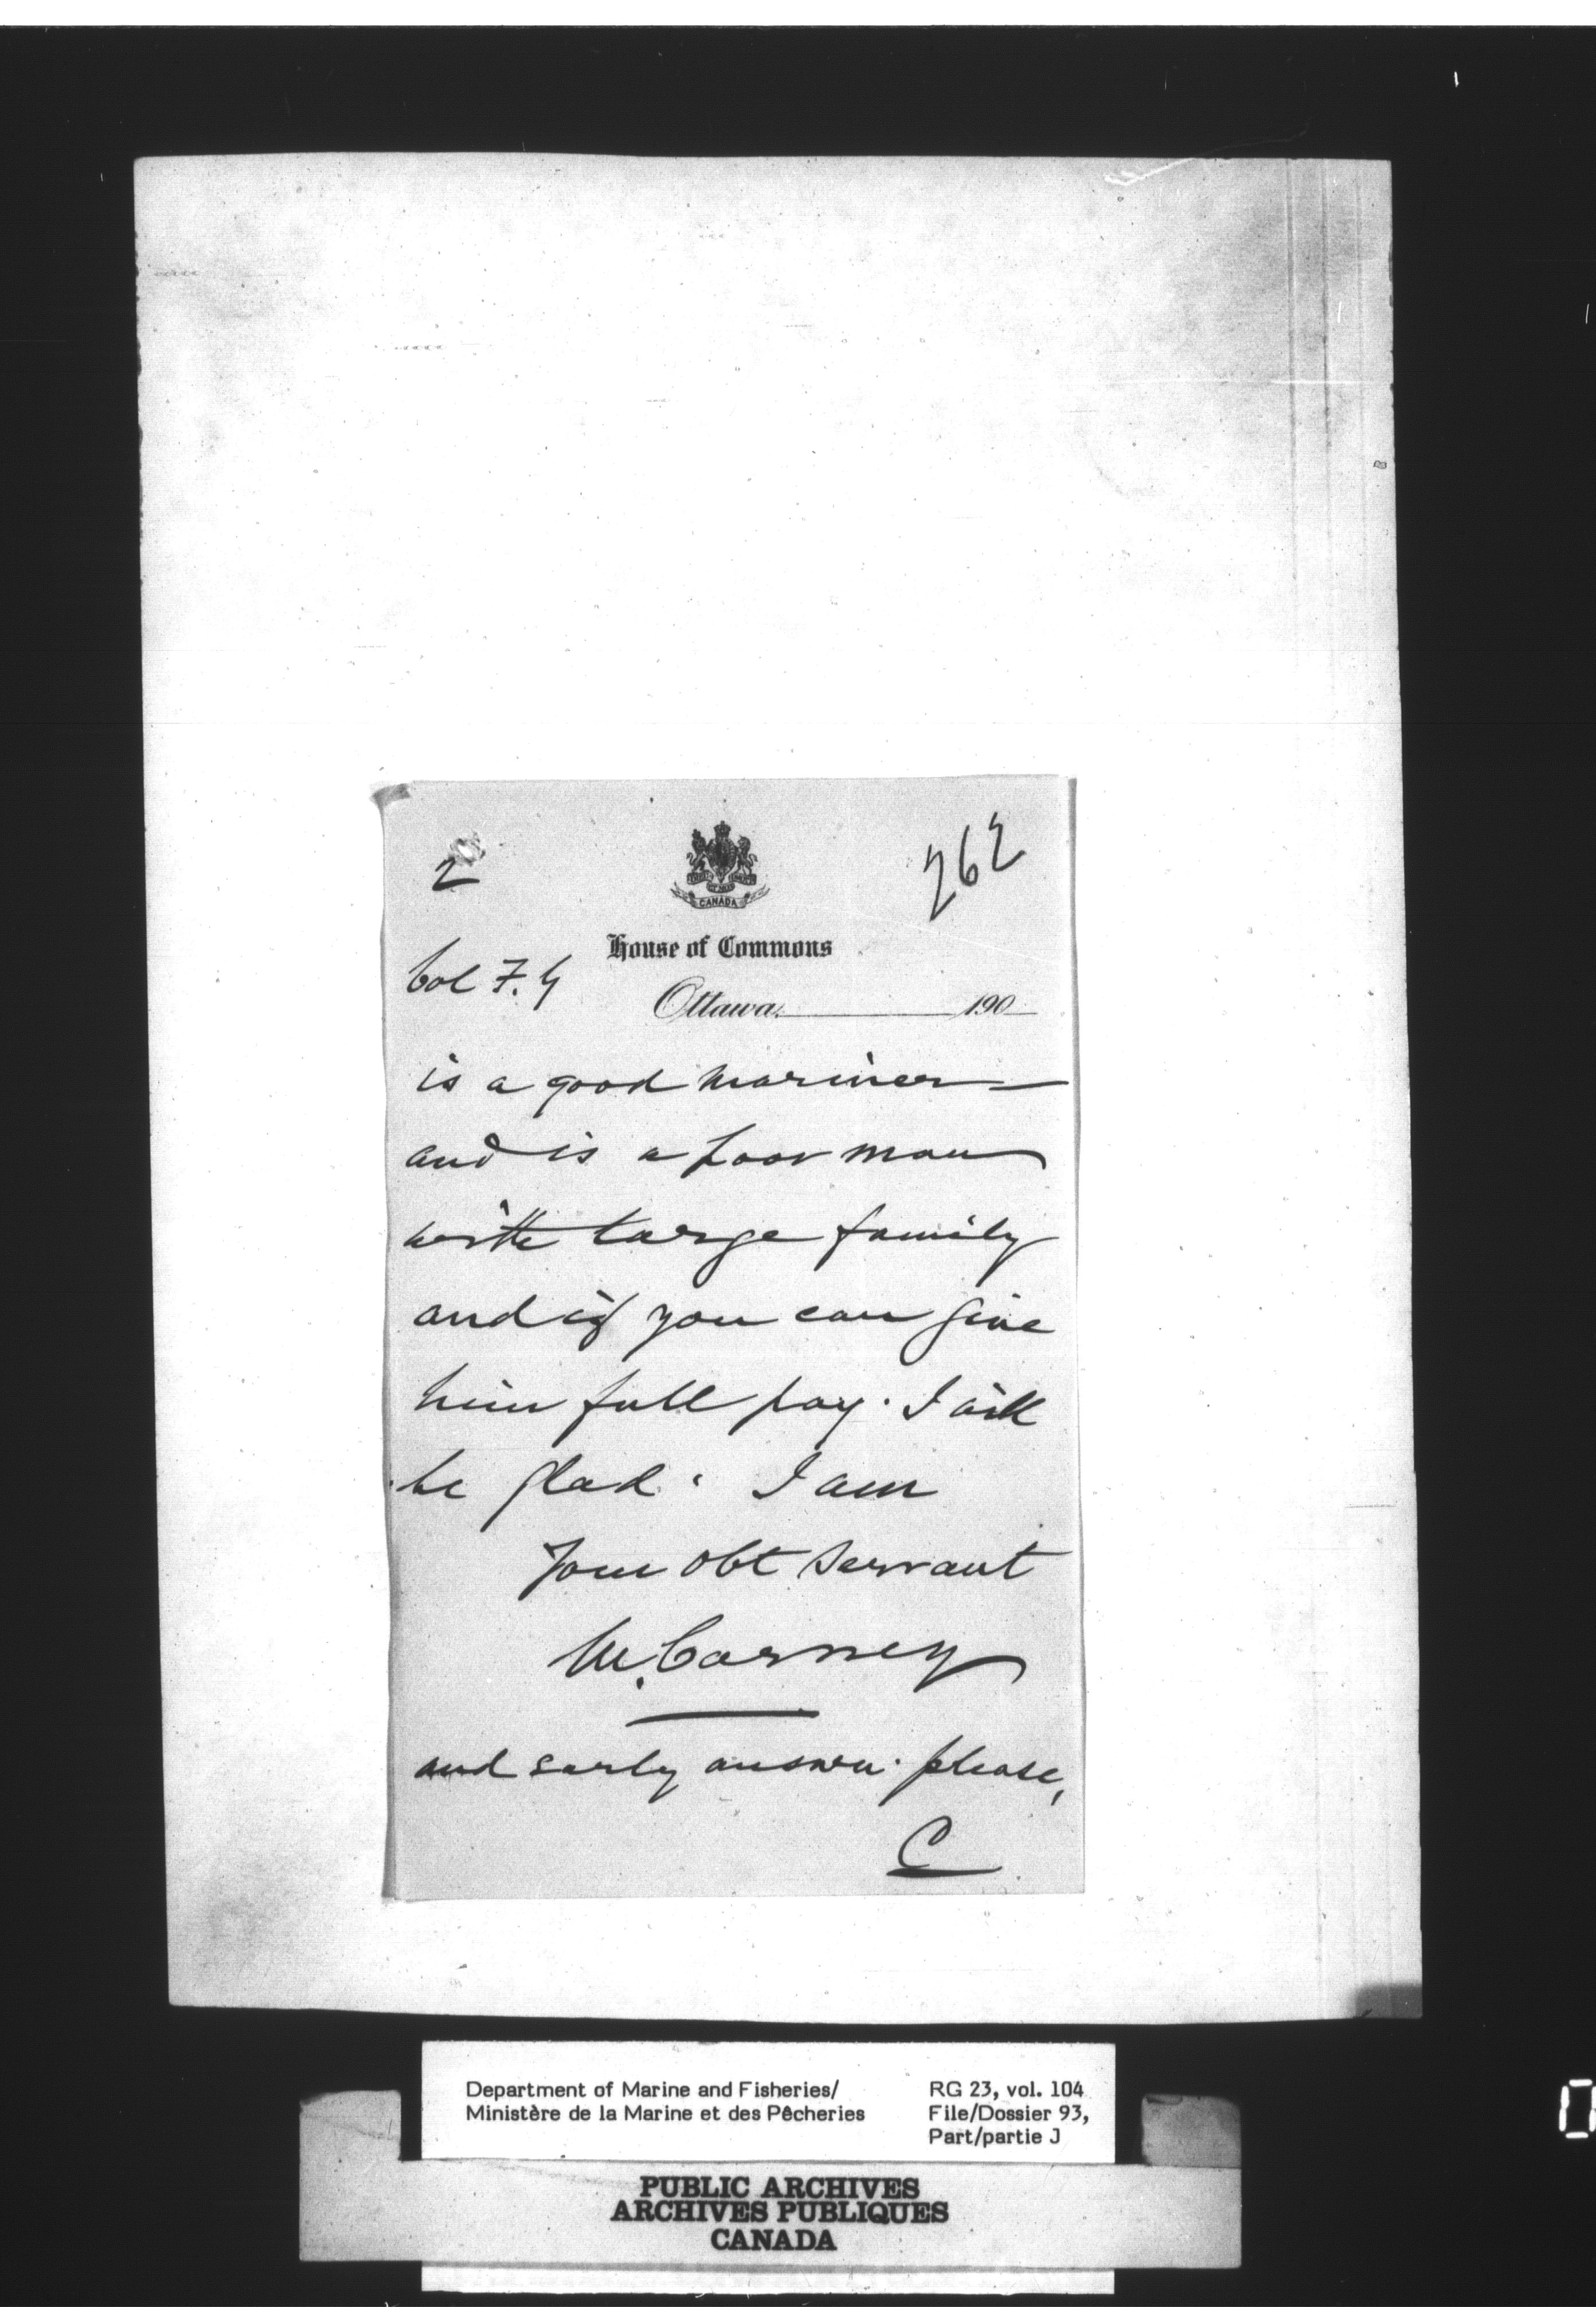 2
262
CANADA
House of Commons
Col F. G
Ottawa, 190
is a good mariner —
and is a poor man
with large family
and if you can give
him full pay. I will
be glad. I am
Your obt servant
M. Carney
and early answer please,
C
Department of Marine and Fisheries/
Ministère de la Marine et des Pêcheries
RG 23, vol. 104
File/Dossier 93,
Part/partie J
PUBLIC ARCHIVES
ARCHIVES PUBLIQUES
CANADA